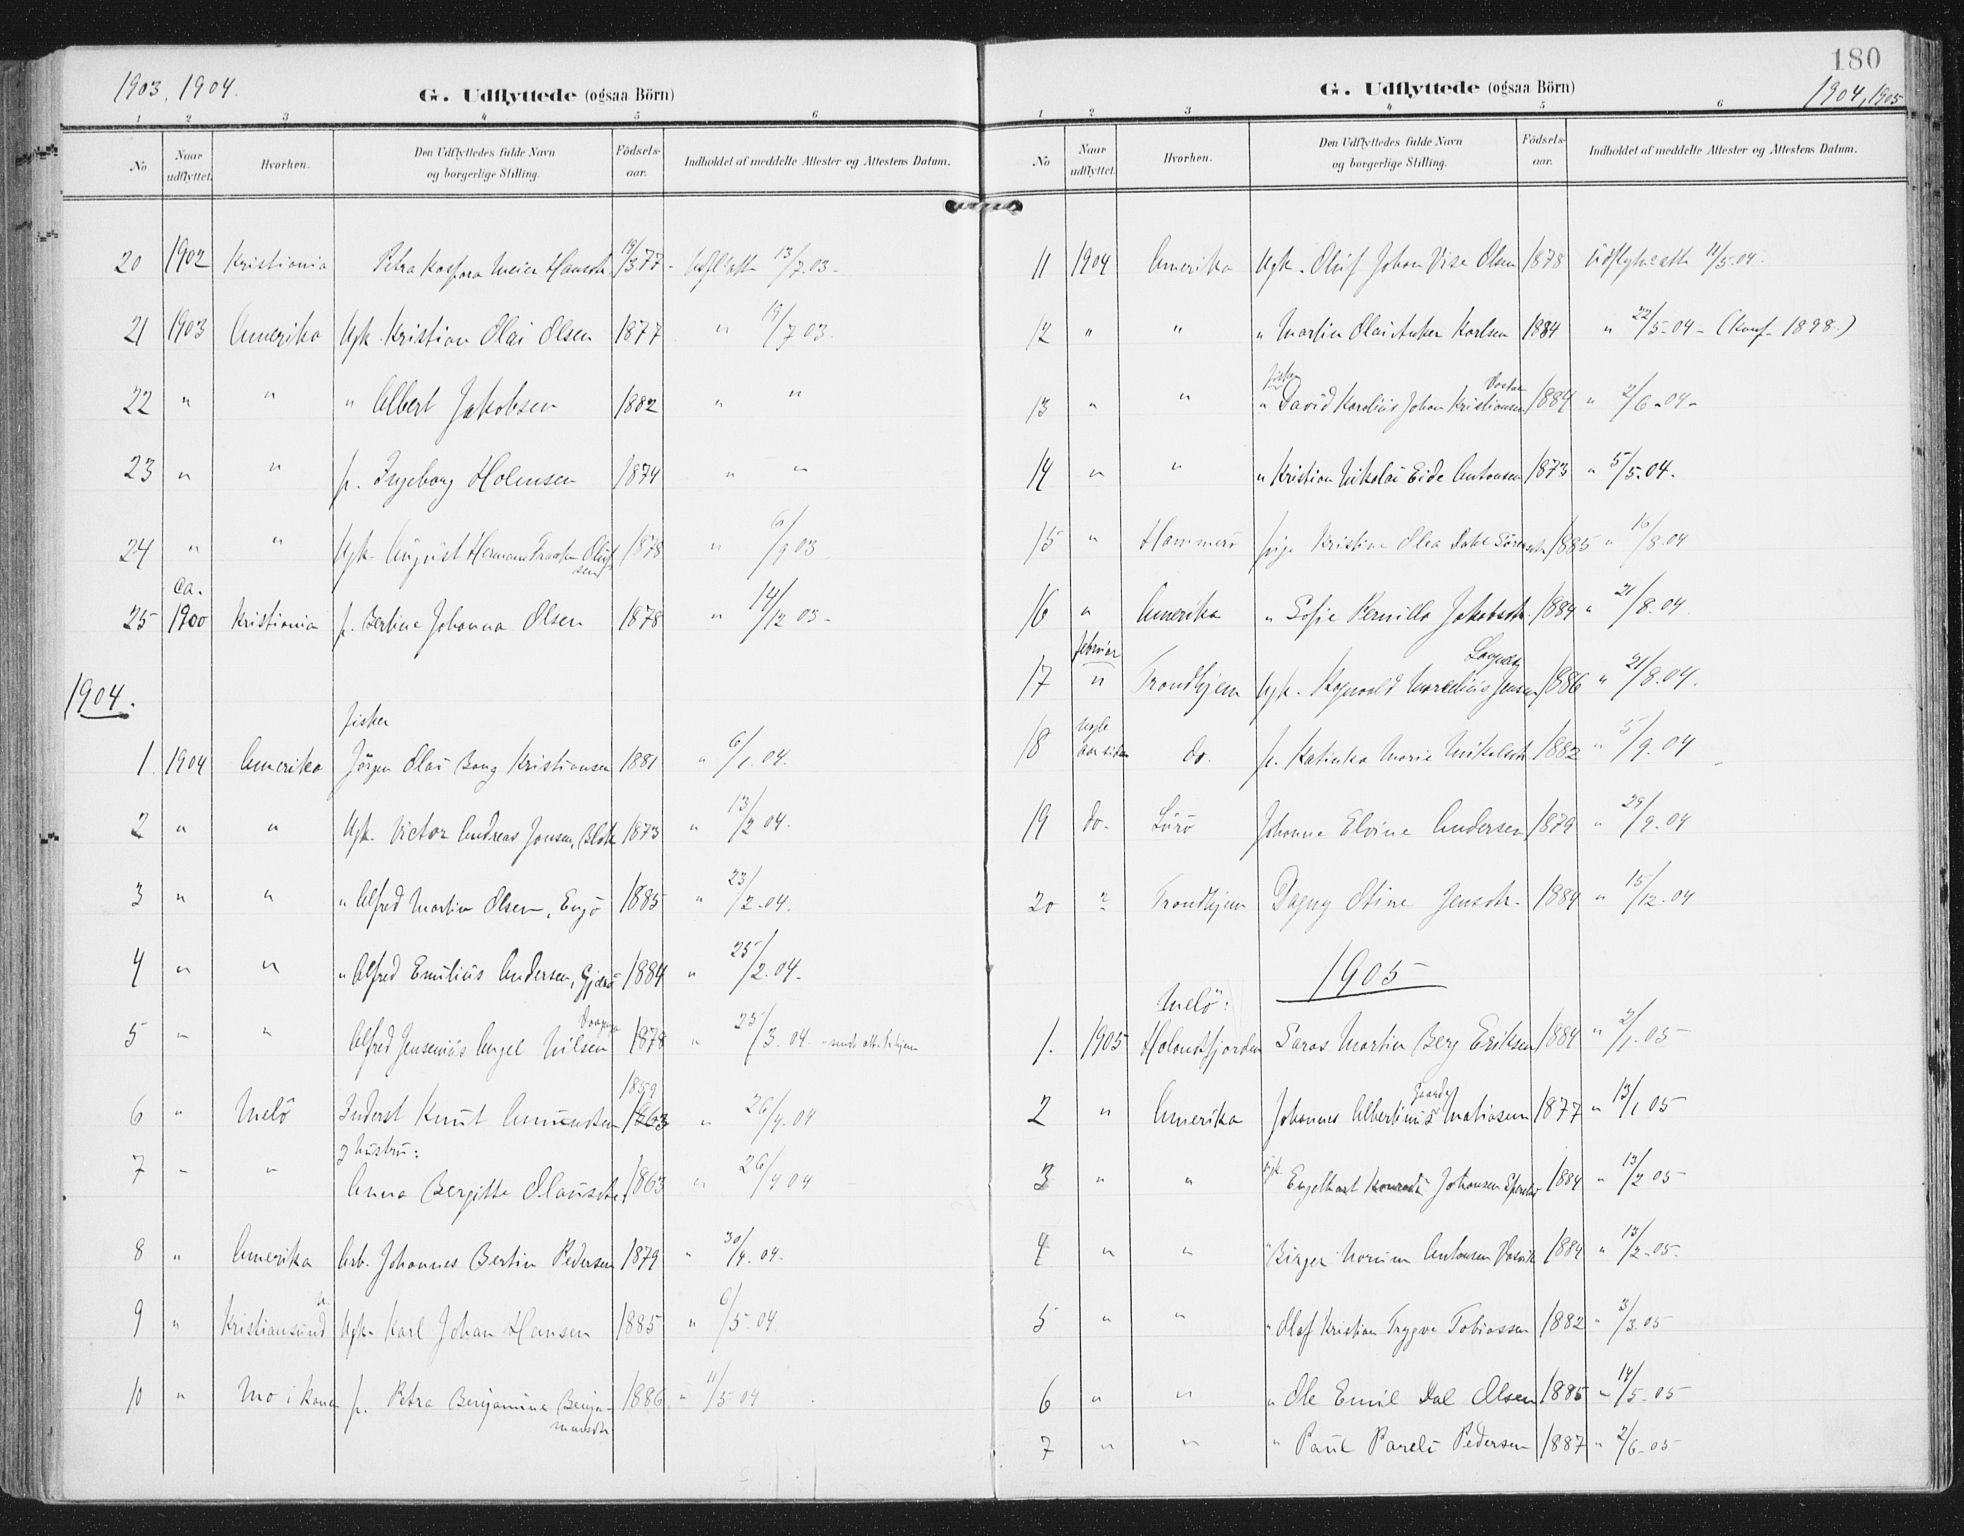 1903, 1904.
G. Udflyttede (ogsaa Börn)
1 2 3 4 5 6
No Naar udflyttet. Hvorhen. Den Udflyttedes fulde Navn og borgerlige Stilling. Födsels-aar. Indholdet af meddelte Attester og Attestens Datum.
20 1902 Kristiania Petra Meier 19/3 77 13/7 03
21 1903 Amerika Ugk. Kristian Olai Olsen 1877 " 19/7 03.
22 " " " Albert Jakobsen 1882 " "
23 " " p. Ingeborg Holmsen 1874 " "
24 " " Ugk. August Herman Olufsen 1878 " 6/9 03
ca.
25 1900 Kristiania p. Bertine Johanna Olsen 1878 " 14/12 03
1904.
fisker
1 1904 Amerika Jörgen Olai Bang Kristiansen 1881 " 6/1 04.
2 " " Ugk. Victor Andreas Jonsen, 1873 " 13/2 04.
3 " " " Alfred Martin Olsen, Engö 1885 " 23/2 04.
4 " " " Alfred Emilius Andersen, 1884 " 25/2 04.
5 " " Alfred Jensenius Angel Nilsen 1878 " 25/3 04
1859
6 " Melö Inderst Knut Amundsen 1863 " 26/4 04
Hustru:
7 " " Anna Bergitte 1863 " 26/4 04
8 " Amerika Arb. Johannes Bertin Pedersen 1879 " 30/4 04.
9 " Kristiansund N Ugk. Karl Johan Hansen 1885 " 6/5 04
10 " Mo i Ranen p. Petra Benjamine 1886 " 11/5 04
180
1904, 1905
G. Udflyttede (ogsaa Börn)
1 2 3 4 5 6
No Naar udflyttet. Hvorhen. Den Udflyttedes fulde Navn og borgerlige Stilling. Födsels-aar. Indholdet af meddelte Attester og Attestens Datum.
11 1904 Amerika Ugk. Oluf Johan Olsen 1878 11/5 04.
12 " " " Martin Olai Anker Karlsen 1884 " 22/5 04 (Konf. 1898.)
13 " " " David Karelius Johan Kristiansen 1884 " 2/6 04
14 " " " Kristian Nikolai Eide Antonsen 1873 " 5/5 04.
15 " Hammerö pige Kristine Olea Dahl 1885 " 16/8 04
16 " Amerika " Sofie Pernilla Jakobsdtr. 1884 " 21/8 04.
februar
17 " Trondhjem Ugk. Ragnvald Marelius Jensen 1886 " 21/8 04.
Nogle
18 aar siden do. p. Katinka Marie 1882 " 5/9 04
19 do. Lurö Johanna Elvine Andersen 1879 " 29/9 04
20 " Trondhjem Dagny Otine Jensdtr. 1884 " 15/12 04
1905
Melö:
1. 1905 Holandsfjorden Martin Berg Eriksen 1884 " 2/1 05
2 " Amerika Johannes Albertinus Matiasen 1877 " 13/1 05
3 " " Ugk. Engelhart Konrad Johansen 1884 " 13/2 05
4 " " " Birger Norum Antonsen 1884 " 13/2 05.
5 " " " Olaf Kristian Trygve Tobiassen 1882 " 3/3 05
6 " " " Ole Emil Dal Olsen 1885 " 14/5 05
7 " " " Paul Pareli Pedersen 1887 " 2/6 05